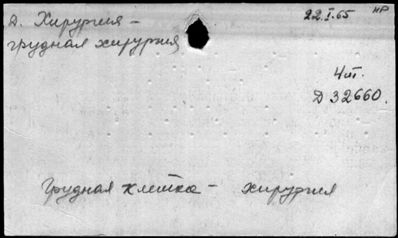 Д. Хирургия - 22.I.65 НР
грудная хирургия
4 м.
Д 32660.
Грудная клетка - хирургия